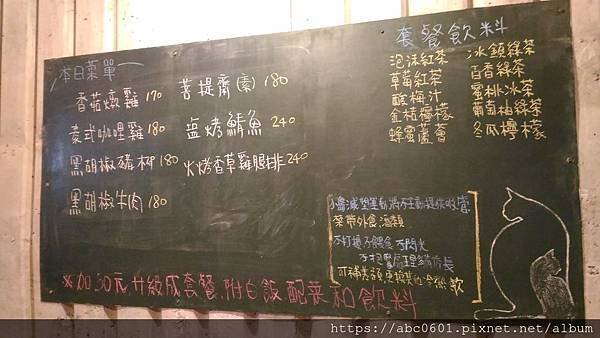 本日菜單
香菇燉雞 170
泰式咖哩雞 180
黑胡椒豬柳 180
黑胡椒牛肉 180
菩提齋(素) 180
鹽烤鯖魚 240
火烤香草雞腿排 240
套餐飲料
泡沫紅茶
草莓紅茶
酸梅汁
金桔檸檬
蜂蜜蘆薈
冰鎮綠茶
百香綠茶
蜜桃冰茶
葡萄柚綠茶
冬瓜檸檬
減塑運動,將不主動提供吸管
禁帶外食,酒類
不打擾 不餵食 不閃火
可補差額,更換其他冷熱飲
※加50元升級成套餐,附白飯 配菜和飲料
https://abc0601.pixnet.net/album